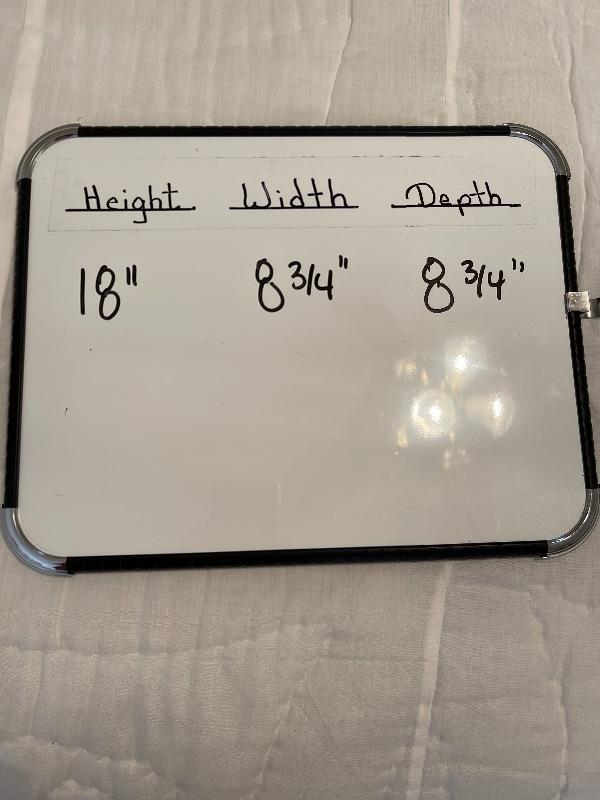 Height Width Depth
18" 8 3/4" 8 3/4"